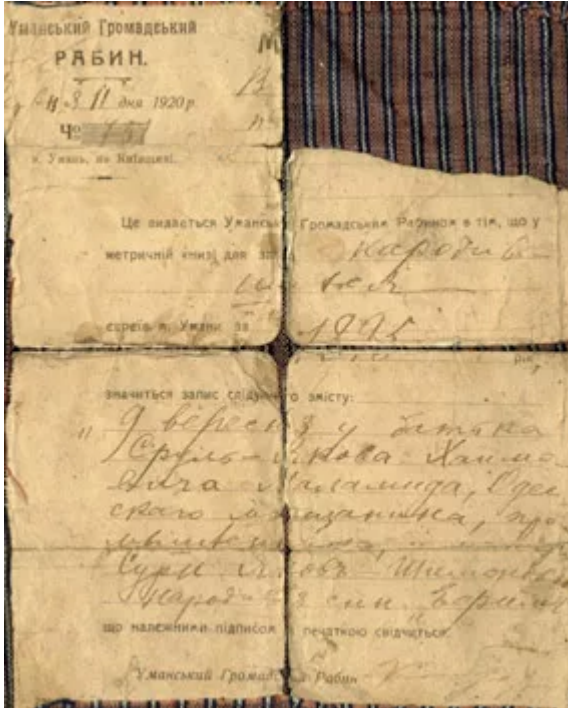 Уманський Громадський
РАБИН.
3 II дня 1920 р.
Чо 151
м. Умань, на Київщині.
Це видається Уманським Громадським Рабином в тім, що у
метричній книзі для народив-
шихся
євреїв м. Умани за 1895
рік,
значиться запис слідуючого змісту:
" 9 вересня у батька
Сруль-Якова Хаимо-
вича Маламуда, Одес-
скаго мещанина,
народився син
що належними підписом і печаткою свідчиться.
Уманський Громадський Рабин